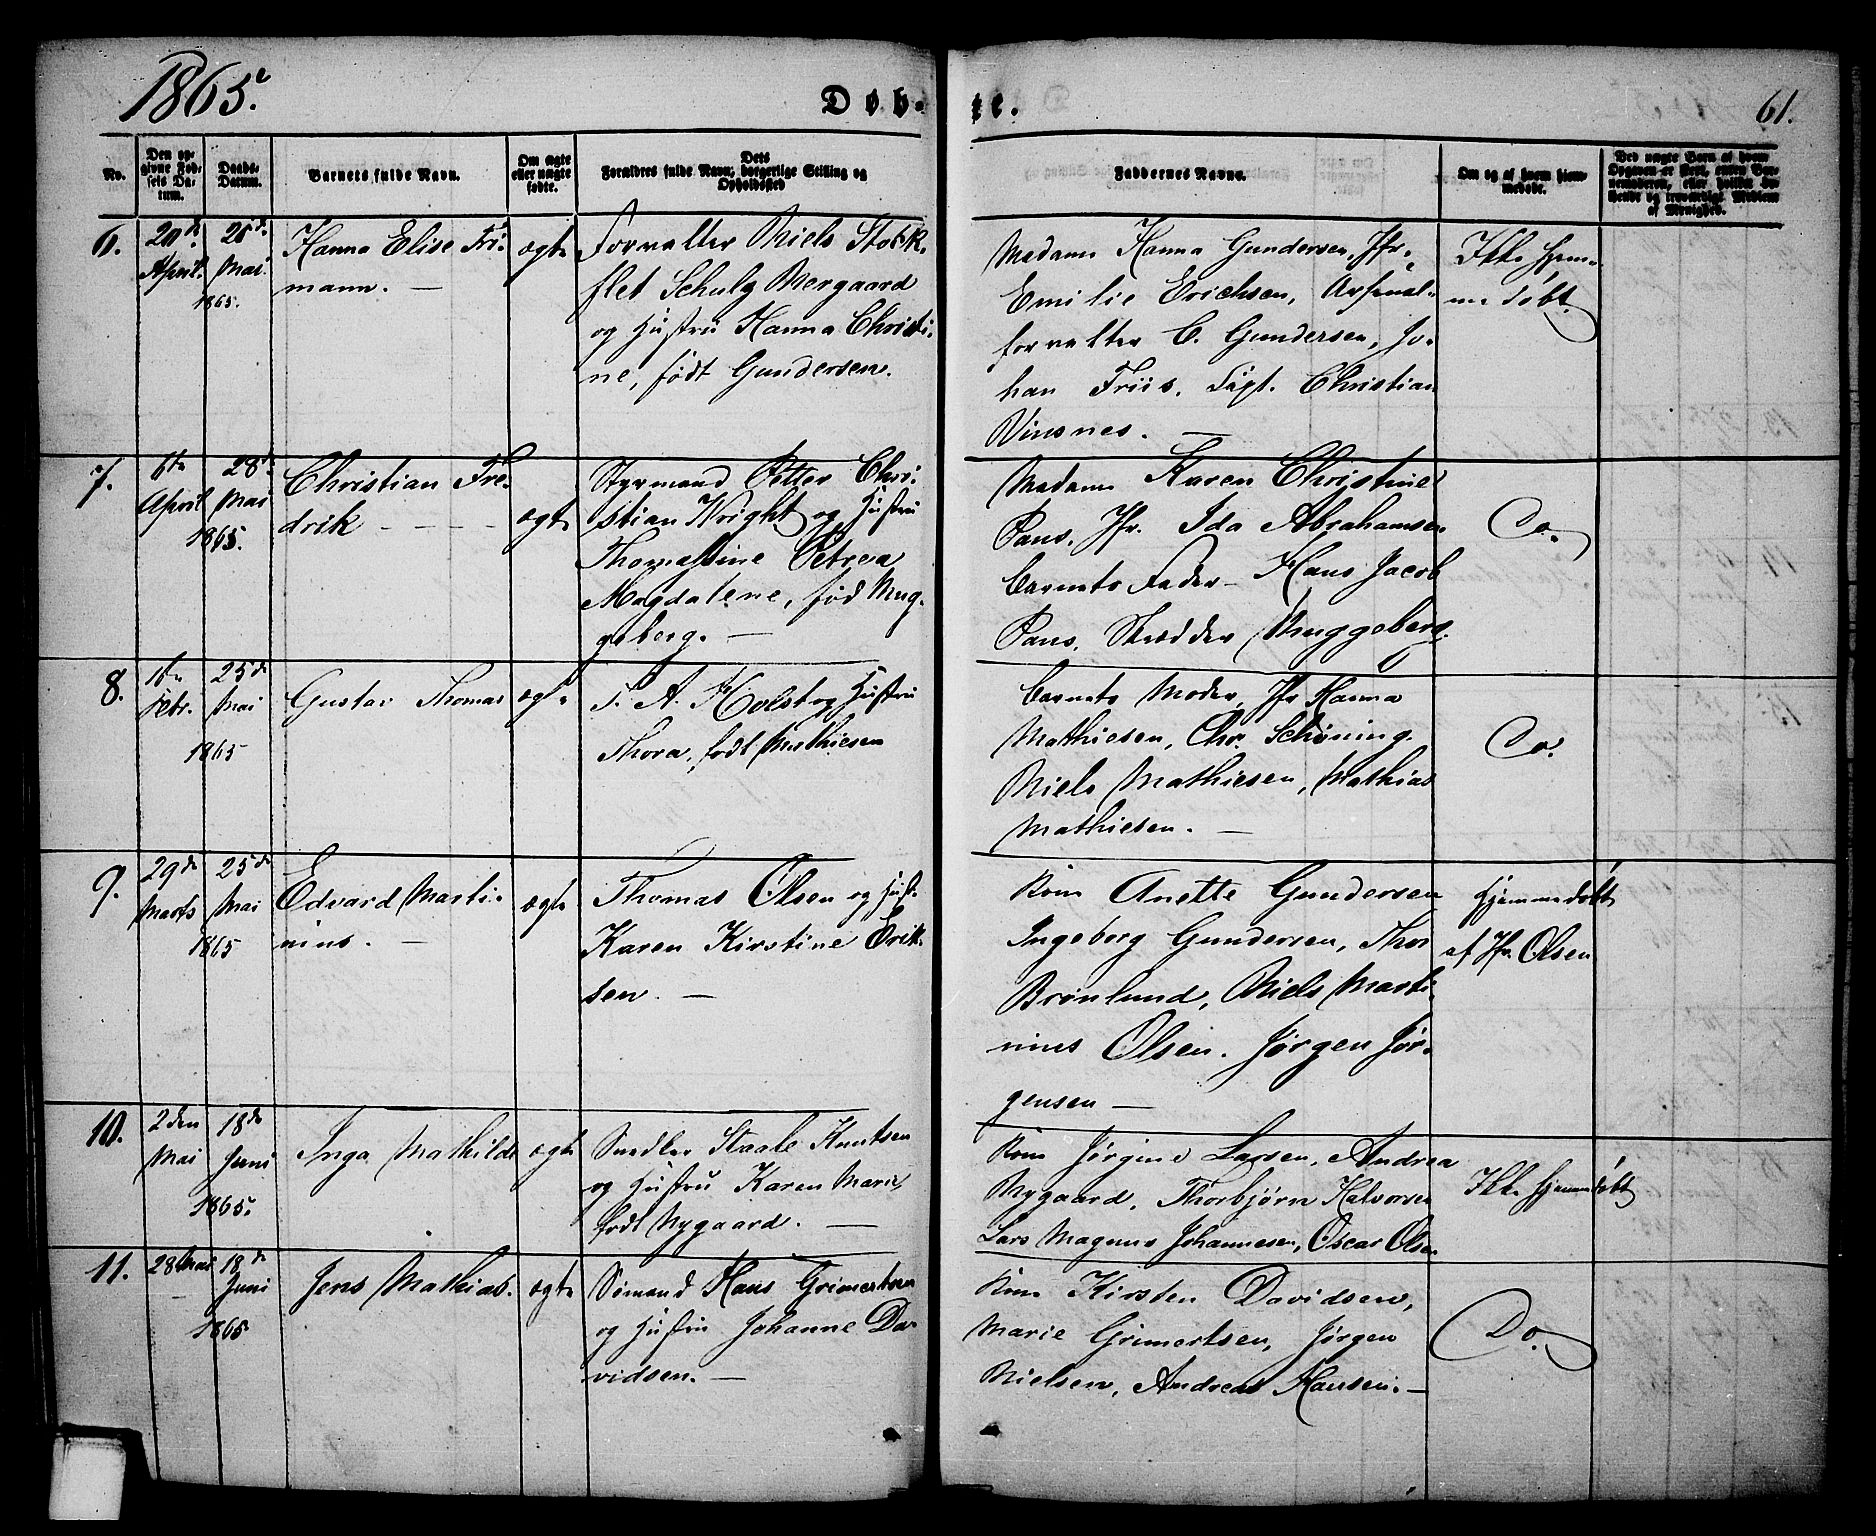 1865.
Døb-
te.
61.
No.
Den op-
givne Fød-
sels Da-
tum.
Daabs-
Datum.
Barnets fulde Navn.
Om ægte
eller uægte
fødte.
Dets
Forældres fulde Navn, borgerlige Stilling og
Opholdssted
Faddernes Navne.
Om og af hvem hjem-
medøbt.
Ved uægte Barn af hvem
Opgaven er skeet, enten Bar-
nemoderen, eller hvilken bo-
siddende og troværdigt Medlem
af Menighed.
6.
20de
April.
28de
Mai
1865.
Hanna Elise Fri-
mann. —
ægte
Forvalter Niels Stock-
flet Schulz Mergaard
og Hustru Hanna Christi-
ne, født Gundersen.
Madame Hanna Gundersen, Jfr.
Emilie Erichsen, Arsenal-
forvalter C. Gundersen, Jo-
han Friis. Christian
Vinsnes. —
Ikke hjem-
me døbt.
7.
April
28de
Mai
1865.
Christian Fre-
drik - - - -
ægte
Styrmand Petter Chri-
stian Wright og Hustru
Thomassine Petrea
Magdalene, fød Mug-
geberg. —
Madame Karen Christine
Paus, Jfr. Ida Abrahamsen
Barnets Fader - Hans Jacob
Paus, Skrædder Muggeberg.
Do.
8.
Febr.
25de
Mai
1865
Gustav Thomas
ægte
T. A. Holst og Hustru
Thora, født Mathiesen
Barnets Moder, Jfr Hanna
Mathiesen, Chr. Schøning.
Niels Mathiesen, Mathias
Mathiesen. —
Do.
9.
29de
Marts
25de
Mai
1865
Edvard Marti-
nius. —
ægte
Thomas Olsen og Hust.
Karen Kirstine Erik-
sen. —
Kone Anette Gundersen
Ingeborg Gundersen, Thor
Brønlund, Niels Marti-
nius Olsen. Jørgen Jør-
gensen —
Hjemmedøbt
af Jfr. Olsen
10.
2den
Mai
18de
Juni
1865.
Inga Mathilde
ægte
Snedker Staale Knutsen
og Hustru Karen Marie,
født Nygaard. —
Kone Jørgine Larsen, Andrea
Nygaard, Thorbjørn Halvorsen
Lars Magnus Johannesen, Oscar Olsen
Ikke hjemmedøbt
11.
28 Mai
18de
Juni
1865
Jens Mathias.
ægte
Sømand Hans Grimertsen
og Hustru Johanne Da-
vidsen. —
Kone Kirsten Davidsen,
Marie Grimertsen, Jørgen
Nielsen, Andreas Hansen. —
Do.